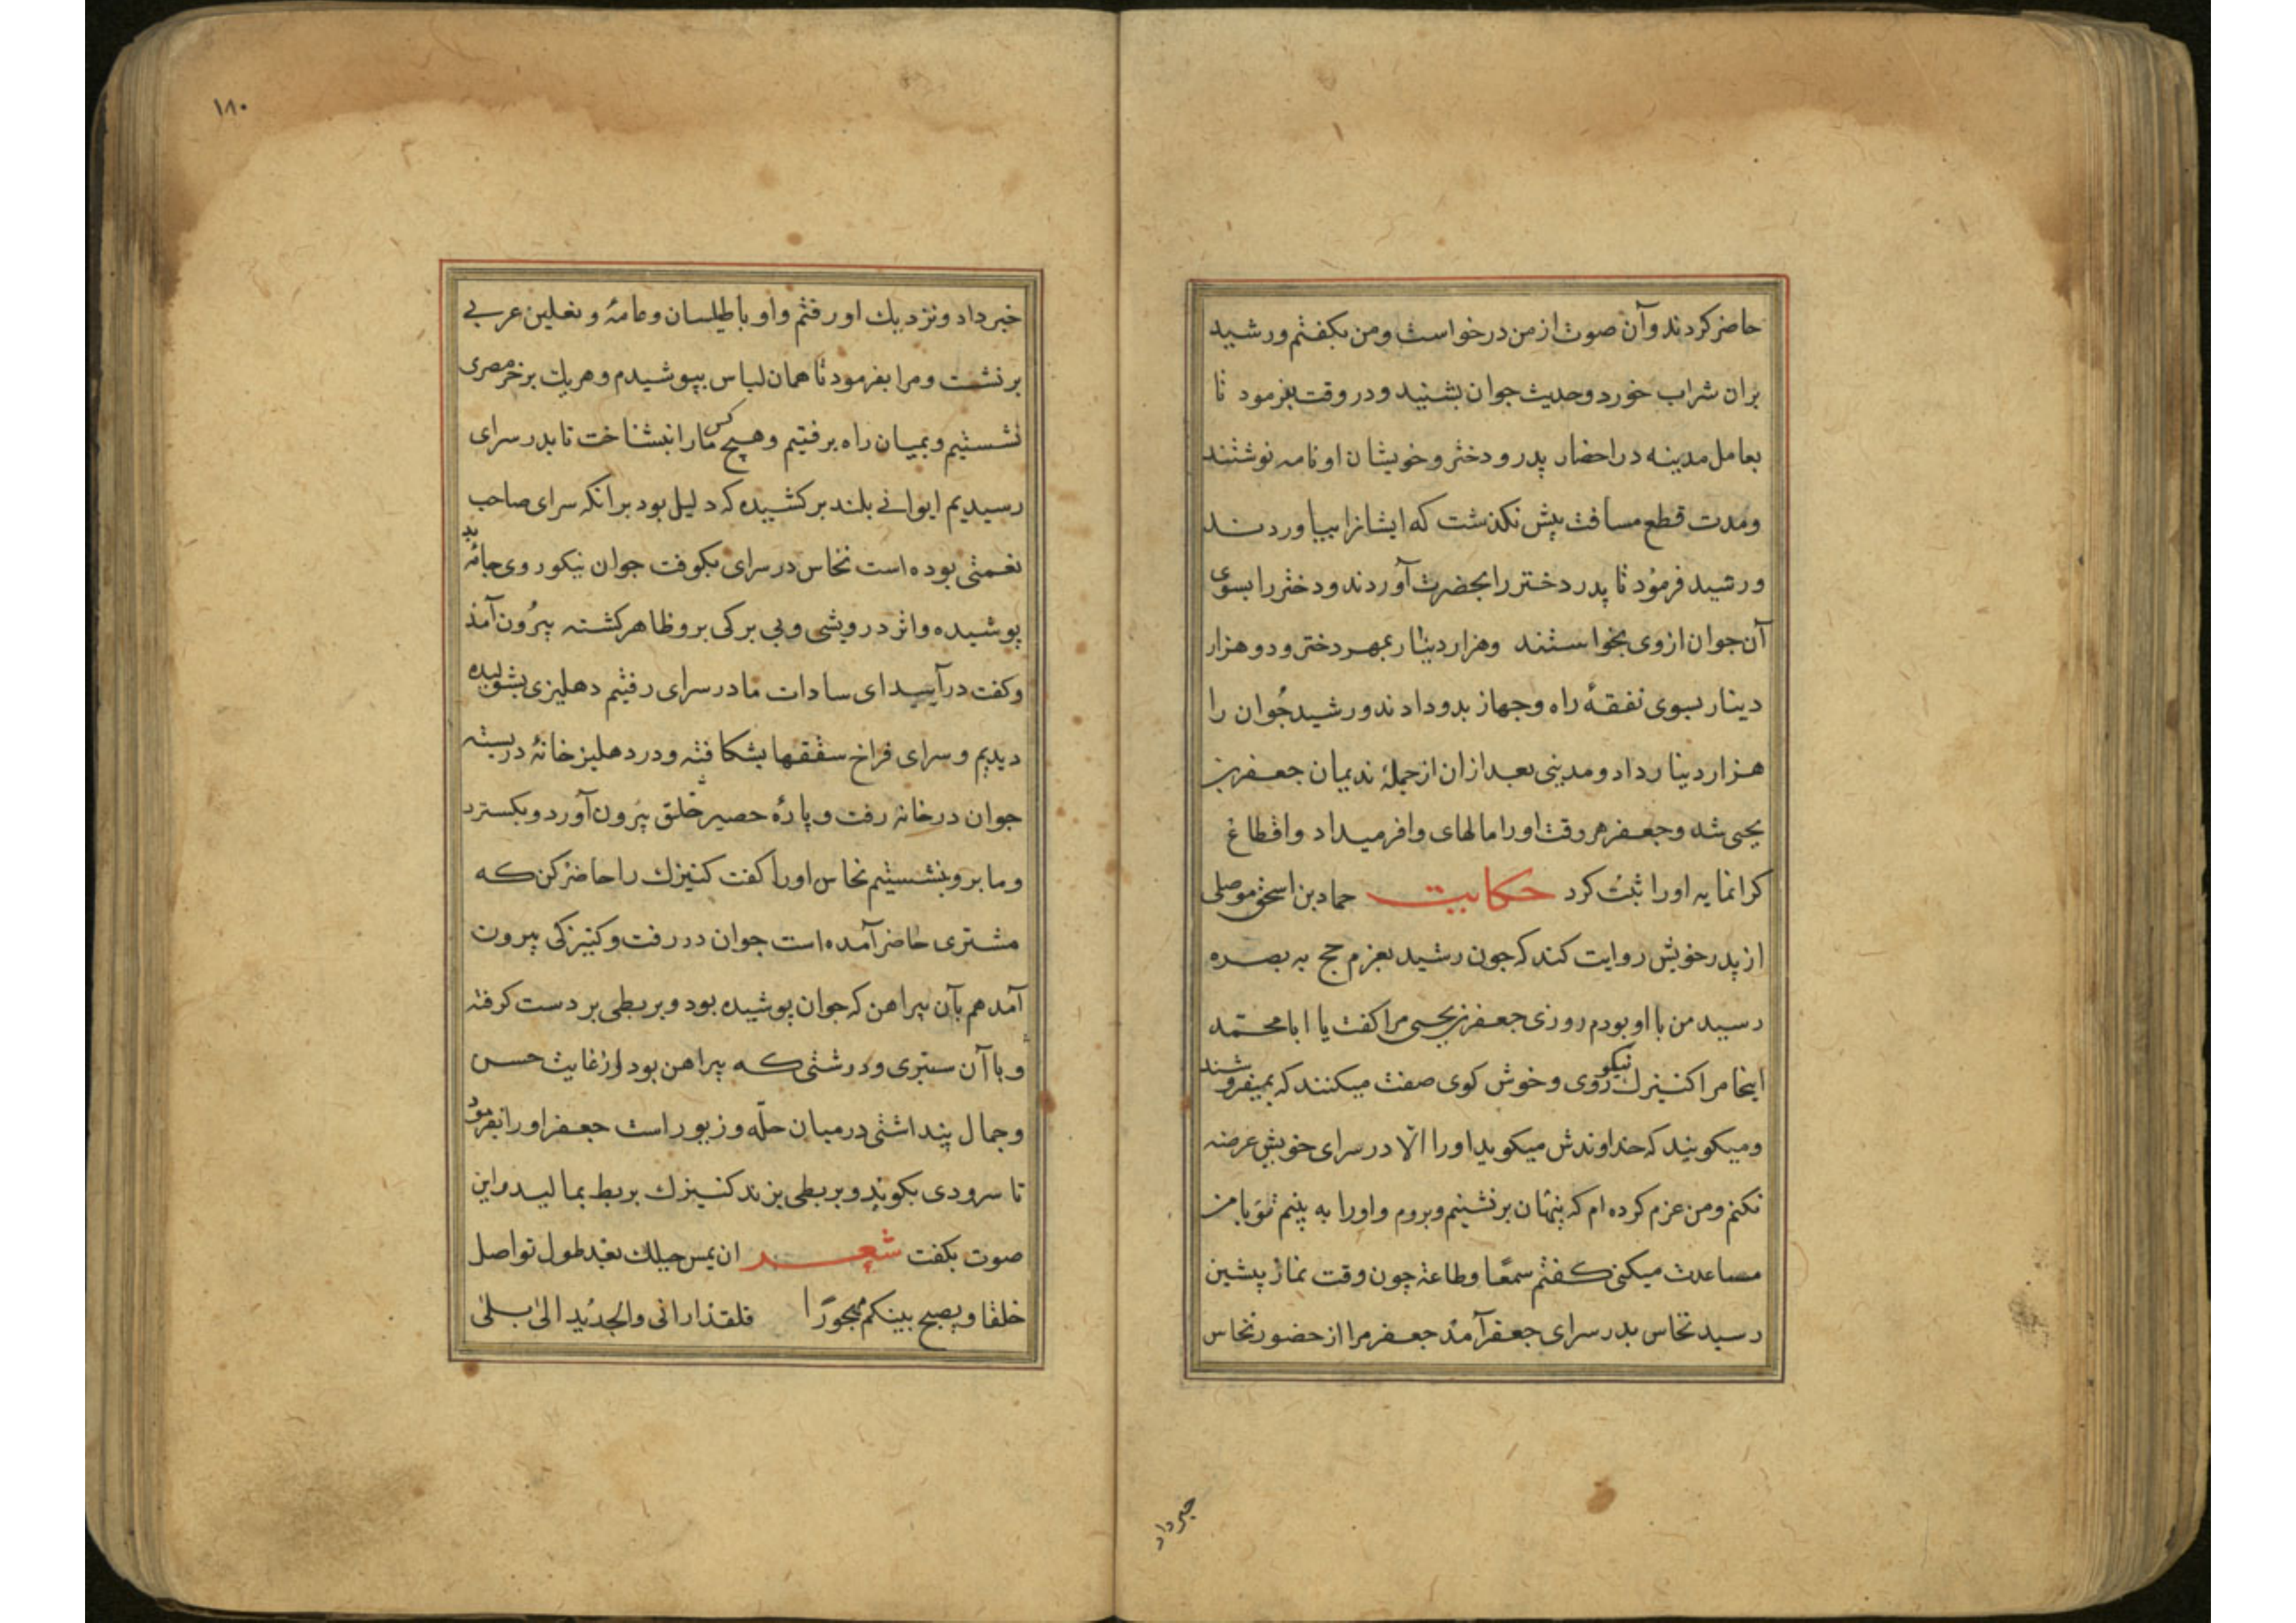 حاضر کردند و آن صوت از من درخواست و من بکفتم و رشید
بران شراب خورد و حدیث جوان بشنید و در وقت بفرمود تا
بعامل مدینه در احضار پدر و دختر و خویشان او نامه نوشتند
ومدت قطع مسافت بیش نکذشت که ایشانرا بیاوردند
ورشید فرمود تا پدر دختر را بحضرت آوردند و دختر را بسوی
آن جوان از وی بخواستند وهزار دینار بمهر دختر و دو هزار
دینار بسوی نفقهٔ راه و جهاز بدو دادند و رشید جُوان را
هزار دینار داد و مدینی بعد ازان از جملهٔ ندیمان جعفر بن
یحیی شد و جعفر هر وقت او را مالهای وافر میداد و اقطاع
کرانمایه او را ثبت کرد حکایت حماد بن اسحق موصلی
از پدر خویش روایت کند که جون رشید بعزم حج به بصره
رسید من با او بودم روزی جعفر بن یحیی مرا کفت یا ابا محمّد
اینجا مرا کنیزک نیکو روی و خوش کوی صفت میکنند که بمیفروشند
ومیکویند که خداوندش میکوید او را الّا در سرای خویش عرضه
نکنم و من عزم کرده ام که پنهان برنشینم و بروم و او را به بینم تو با من
مساعدت میکنی کفتم سمعًا وطاعة چون وقت نماز پیشین
رسید نخّاس بدر سرای جعفر آمد جعفر مرا از حضور نخاس
خبر داد
١٨٠
خبر داد و نزدیک او رفتم و او با طیلسان وعامهٔ و نعلین عربی
برنشت و مرا بفرمود تا همان لباس بپوشیدم و هریک بر خر مصری
نشستیم و بمیان راه برفتیم و هیچ کس ما را نبشناخت تا بدر سرای
رسیدیم ایوانی بلند برکشیده که دلیل بود برانکه سرای صاحب
نعمتی بوده است نخاس در سرای بکوفت جوان نیکو روی جامهٔ بد
پوشیده و اثر درویشی و بی برکی برو ظاهر کشته بیرُون آمذ
وکفت درآیید ای سادات ما در سرای رفتیم دهلیزی بشولیده
دیدیم و سرای فراخ سقفها بشکافته و در دهلیز خانهٔ در بسته
جوان در خانه رفت و پارهٔ حصیر خلق بیرون آورد و بکسترد
وما برو بنشستیم نخاس او را کفت کنیزک را حاضر کن که
مشتری حاضر آمده است جوان در رفت و کنیزکی بیرون
آمد هم بآن پیراهن که جوان پوشیده بود و بربطی بر دست کرفته
و با آن ستبری و درشتی که پیراهن بود از غایت حسن
وجمال پنداشتی در میان حلّه و زیور است جعفر او را بفرمود
تا سرودی بکوید و بربطی بزند کنیزک بربط بمالید و این
صوت بکفت شعر ان یمس حبلك بعد طول تواصل
خلقا ویصبح بینکم مهجورًا فلقد ارانی والجدید الی بلی